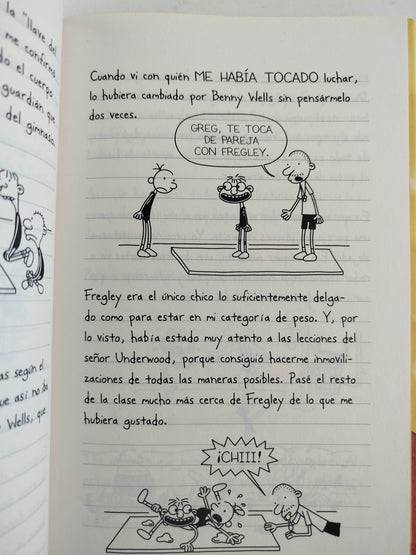 la "llave del
me confirmó
do el cuerpo
guardián que
del gimnasio.
as según el
que así no iba
Wells, que
Cuando vi con quién ME HABÍA TOCADO luchar,
lo hubiera cambiado por Benny Wells sin pensármelo
dos veces.
GREG, TE TOCA
DE PAREJA
CON FREGLEY.
Fregley era el único chico lo suficientemente delga-
do como para estar en mi categoría de peso. Y, por
lo visto, había estado muy atento a las lecciones del
señor Underwood, porque consiguió hacerme inmovili-
zaciones de todas las maneras posibles. Pasé el resto
de la clase mucho más cerca de Fregley de lo que me
hubiera gustado.
¡CHIII!